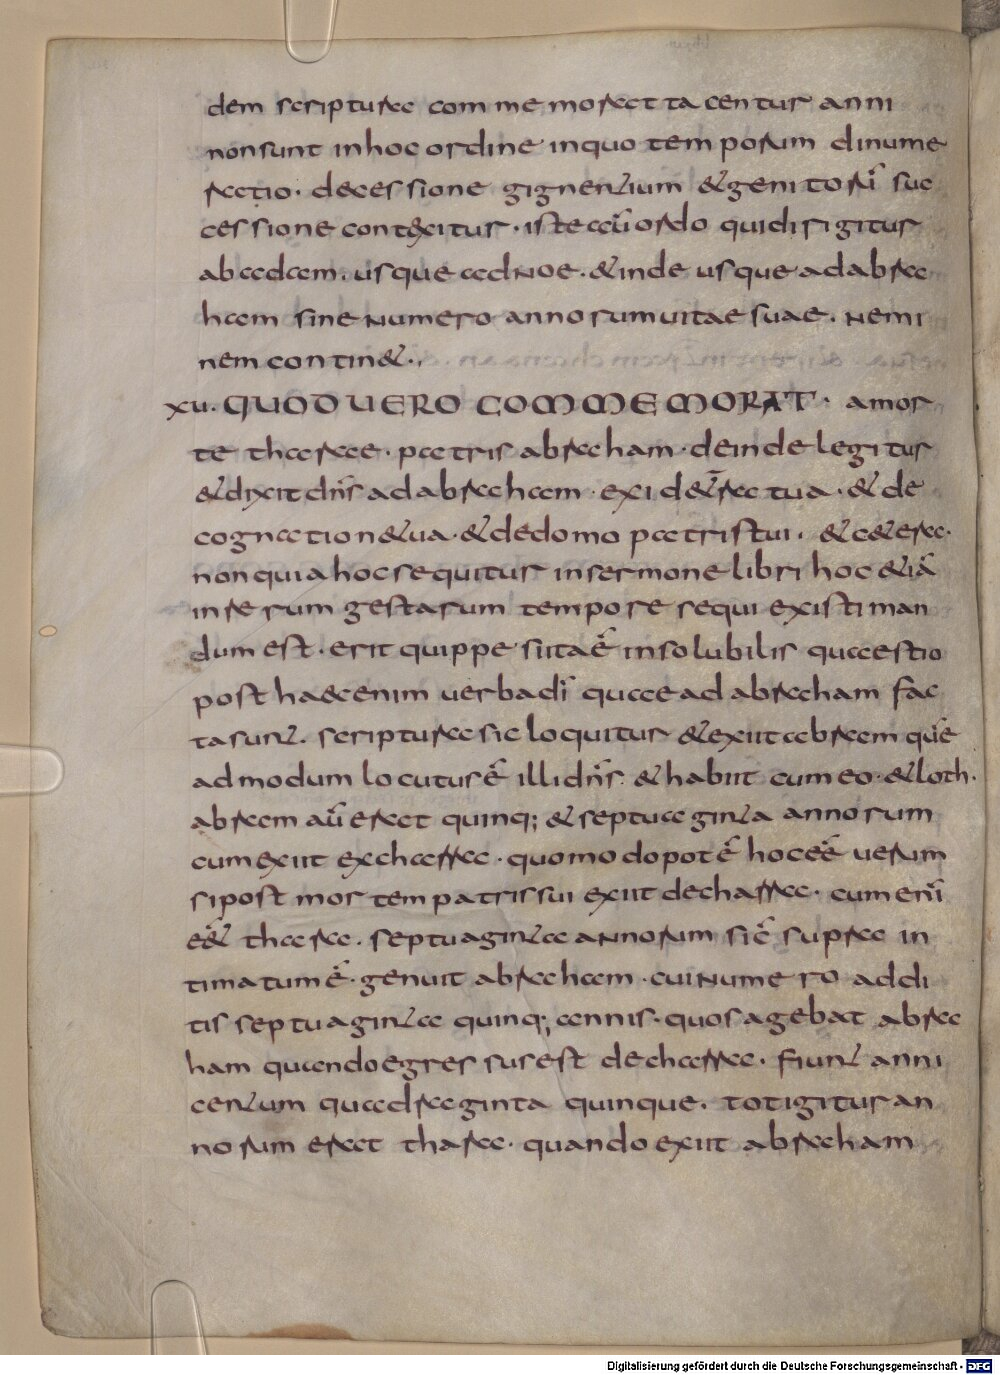 dem scripturae commemorat tacentur anni
non sunt inhoc ordine inquo temporum dinume
ratio. decessione gignentium & genitorū suc
cessione contexitur. iste aeūordo quidirigitur
ab adam. usque ad NOE. & inde usque ad abra
ham sine Numero annorum uitae suae. Nemi
nem contin&.
xu. QUOD UERO COMMEMORAT. amor
te tharae. patris abraham. deinde legitur
& dixit dn̄s ad abraham. exi de t̄ra tua. & de
cognation& tua. & dedomo patris tui. & c&era.
non quia hoc sequitur in sermone libri hoc &iā
in rerum gestarum tempore sequi existiman
dum est. erit quippe si ita ē insolubilis quaestio
post haec enim uerba dī quae ad abraham fac
ta sunt. scriptura sic loquitur & exiit abram quē
ad modum locutus ē illi dn̄s. & habiit cum eo. & loth.
abram aū erat quinq; & septuaginta annorum
cum exiit ex charra. quomodo pot ē hoc eē uerum
si post mortem patris sui exiit de charra. cum enī
eē& thara. septuaginta annorum sic̄ supra in
timatum ē. genuit abraham. cui numero addi
tis septuaginta quinq; annis. quos agebat abra
ham quando egressus est de charra. fiunt anni
centum quadraginta quinque. tot igitur an
norum erat thara. quando exiit abraham
Digitalisierung gefördert durch die Deutsche Forschungsgemeinschaft - DFG